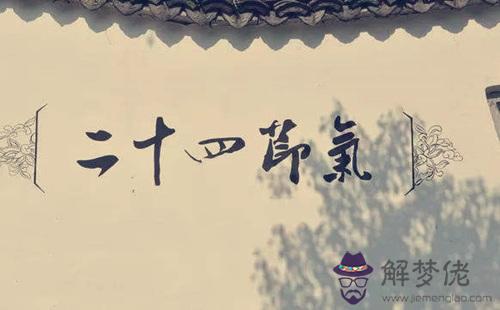 二十四節氣
解梦佬
www.jiemenglao.com